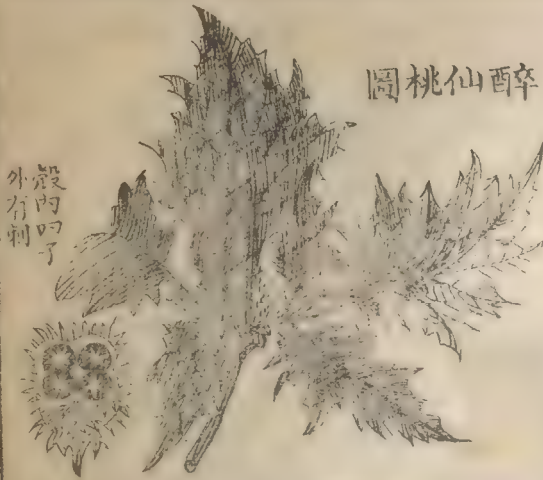 醉仙桃圖
殼內四子
外有刺